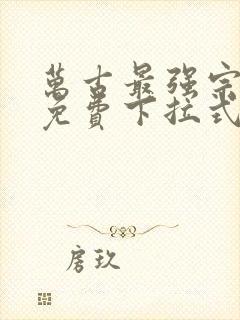 萬古最强宗
免費下拉式
房玖